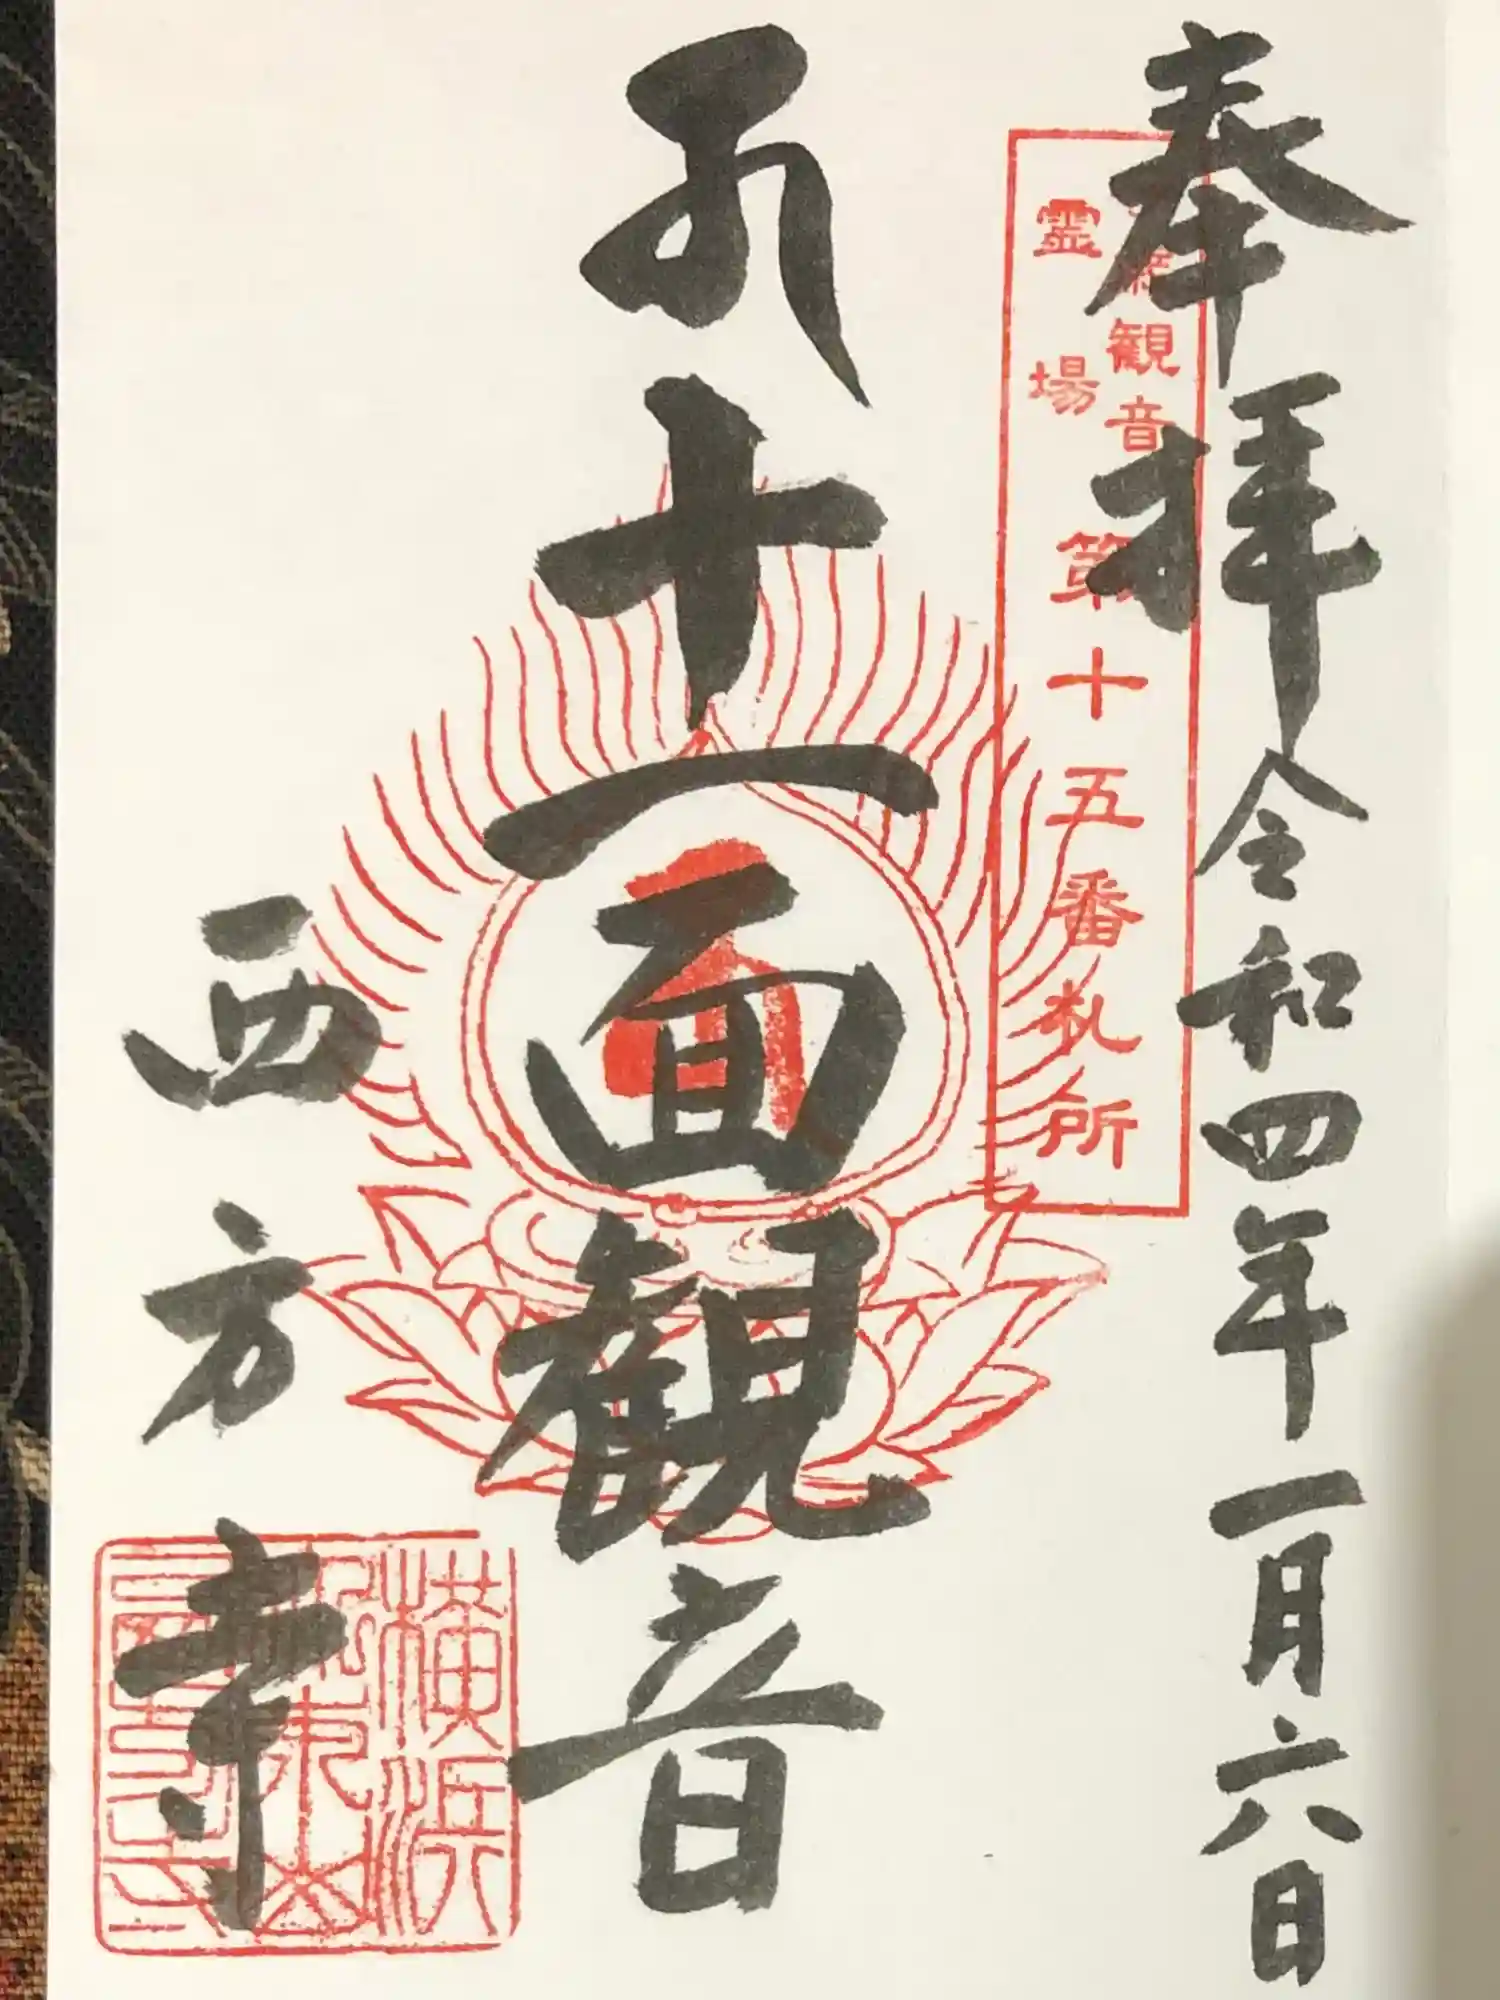 奉拝 令和四年一月六日
観音
霊場
第十五番札所
十一面観音
西方寺
横浜